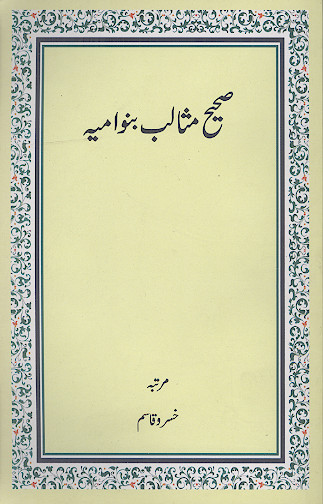 صحیح مثالب بنوامیہ
مرتبہ
خسرو قاسم